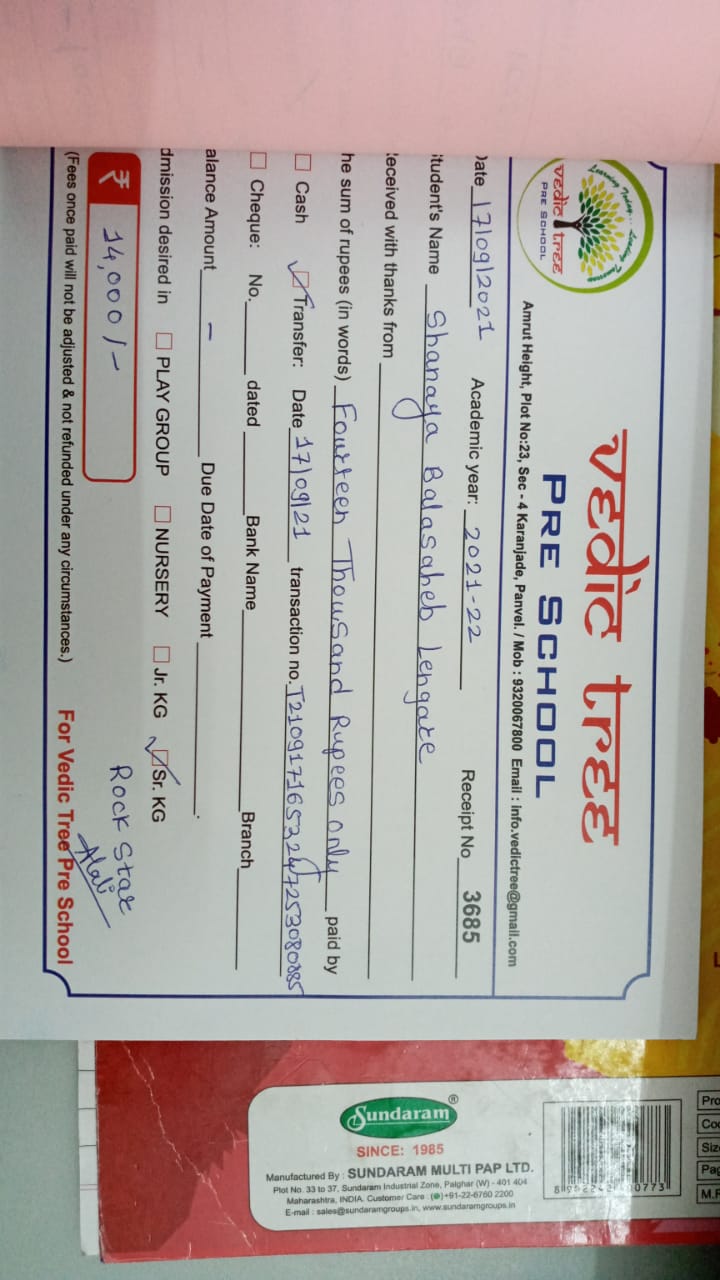 Learning Today... Leading Tomorrow
vedic tree
PRE SCHOOL
vedic tree
PRE SCHOOL
Amrut Height, Plot No:23, Sec - 4 Karanjade, Panvel. / Mob : 9320067800 Email : info.vedictree@gmail.com
Date 17/09/2021 Academic year: 2021-22 Receipt No 3685
Student's Name Shanaya Balasaheb Lengare
Received with thanks from
he sum of rupees (in words) Fourteen Thousand Rupees only paid by
Cash Transfer: Date 17/09/21 transaction no.
Cheque: No. dated Bank Name Branch
alance Amount - Due Date of Payment
dmission desired in PLAY GROUP NURSERY Jr. KG Sr. KG
₹ 14,000/-
Rock Star
(Fees once paid will not be adjusted & not refunded under any circumstances.) For Vedic Tree Pre School
Sundaram ®
SINCE: 1985
Manufactured By : SUNDARAM MULTI PAP LTD.
Plot No. 33 to 37, Sundaram Industrial Zone, Palghar (W) - 401 404
Maharashtra, INDIA. Customer Care : +91-22-6760 2200
E-mail : sales@sundaramgroups.in, www.sundaramgroups.in
Pro
Co
Siz
Pag
M.R